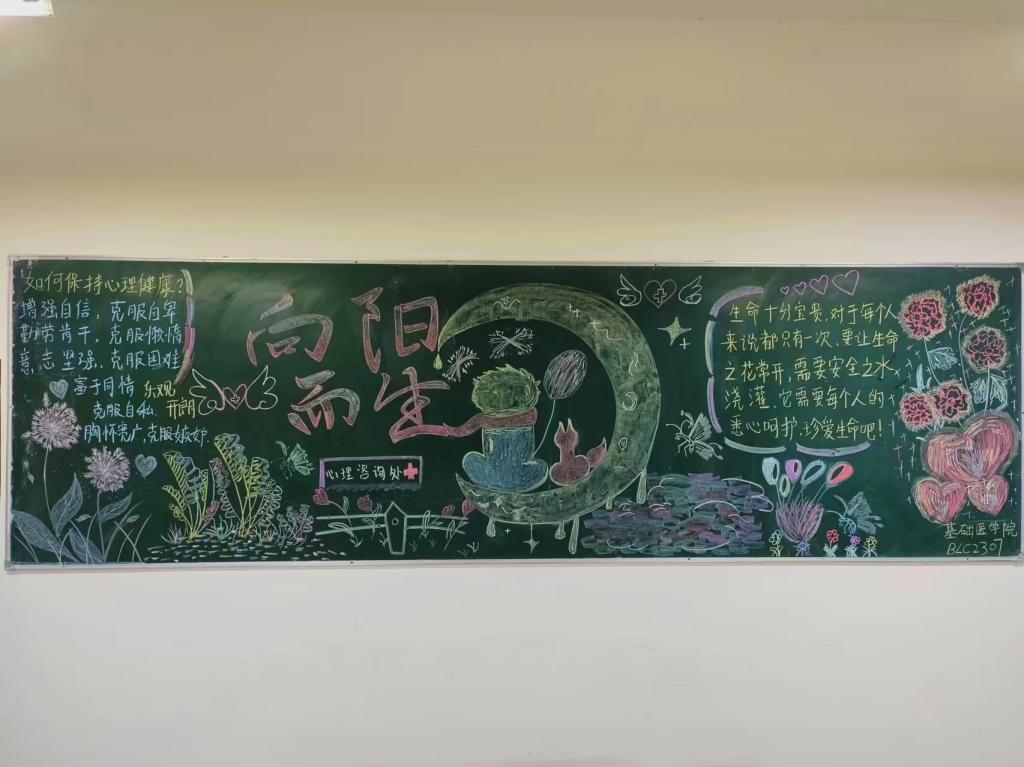 如何保持心理健康?
增强自信,克服自卑
勤劳肯干,克服懒惰
意志坚强,克服困难
富于同情 乐观
克服自私. 开朗
胸怀宽广,克服嫉妒.
向阳
而生
心理咨询处
生命十分宝贵,对于每个人
来说都只有一次.要让生命
之花常开,需要安全之水
浇灌.它需要每个人的
悉心呵护.珍爱生命吧!
基础医学院
BLC2307